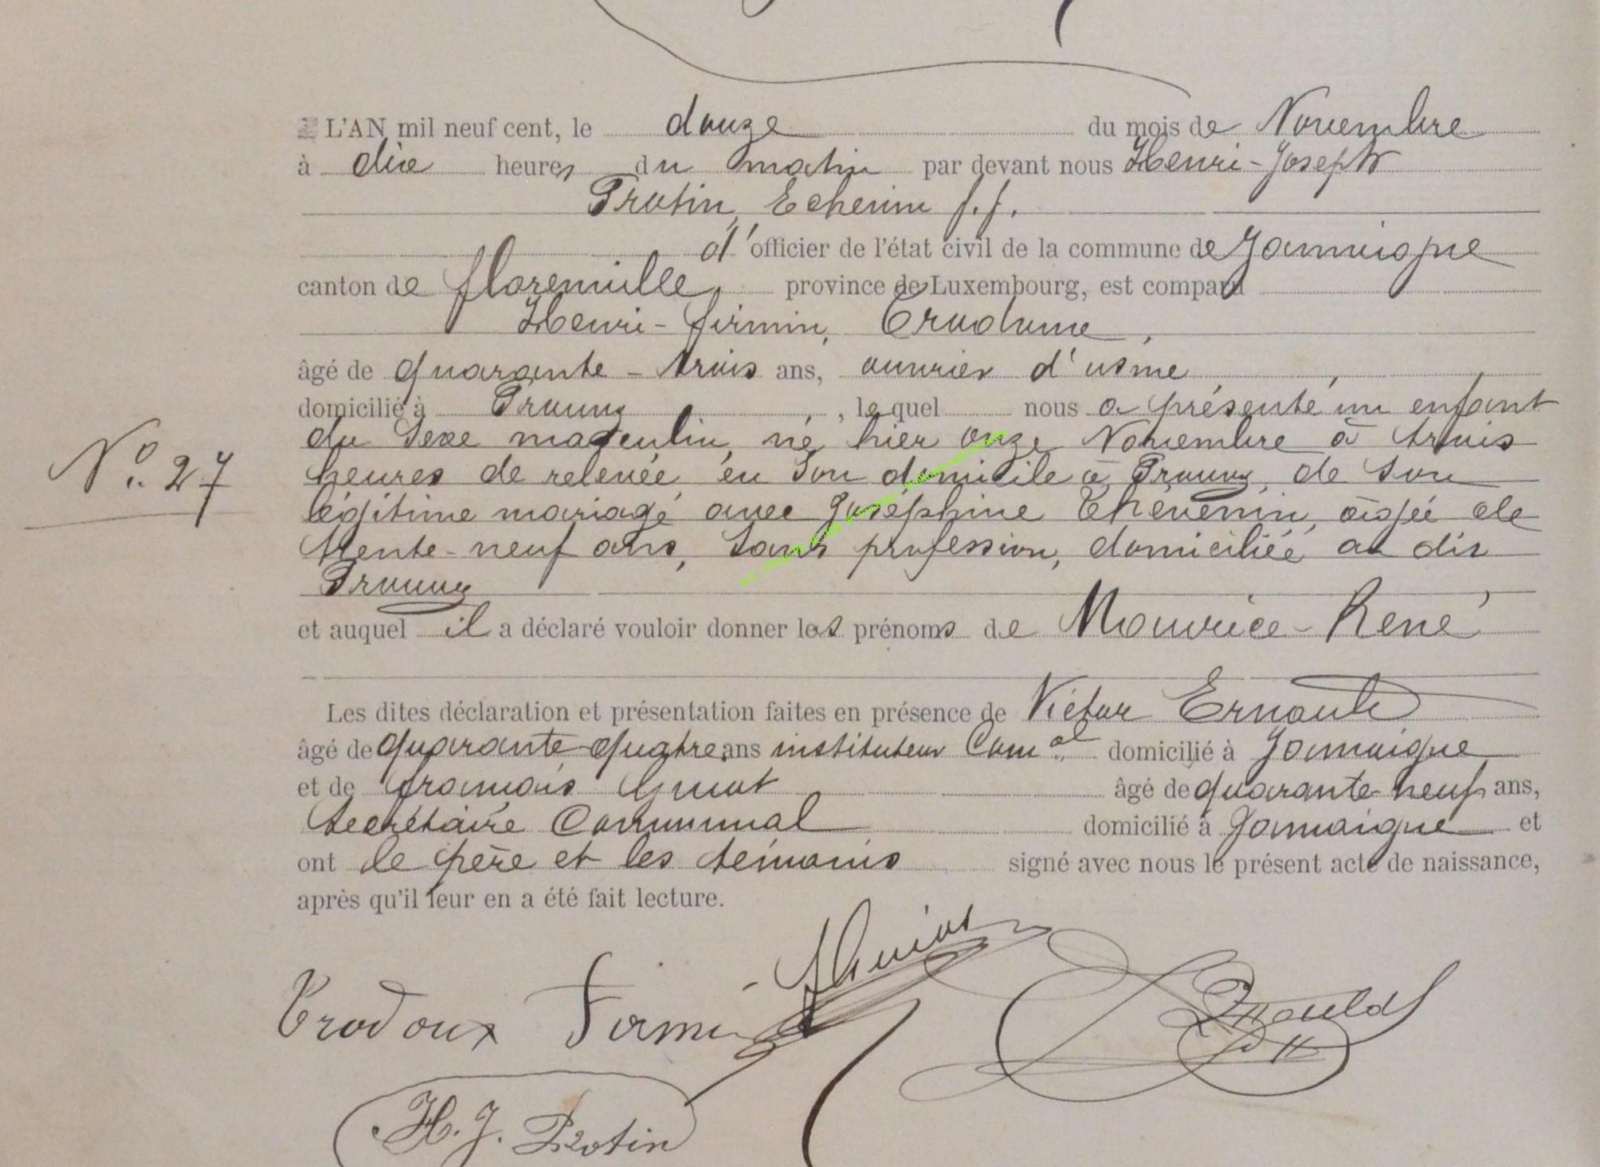 L'AN mil neuf cent, le douze du mois de Novembre
à dix heures du matin par devant nous Henri-Joseph
Protin, Echevin f.f.
d'officier de l'état civil de la commune de Jamoigne
canton de florenville, province de Luxembourg, est comparu
Henri-firmin,
âgé de quarante-trois ans, ouvrier d'usine,
domicilié à Prouvy, lequel nous a présenté un enfant
N° 27
du Sexe masculin, né hier onze Novembre à trois
heures de relevée en Son domicile à Prouvy, de son
légitime mariage avec Joséphine Thévenin, âgée de
trente-neuf ans, Sans profession, domiciliée au dit
Prouvy
et auquel il a déclaré vouloir donner les prénoms de Mauvice-René
Les dites déclaration et présentation faites en présence de Victor
âgé de quarante-quatre ans instituteur Com.al domicilié à Jamoigne
et de françois âgé de quarante-neuf ans,
Secrétaire Communal domicilié à Jamoigne et
ont le père et les témoins signé avec nous le présent acte de naissance,
après qu'il leur en a été fait lecture.
Trodoux Firmin
H. J. Protin